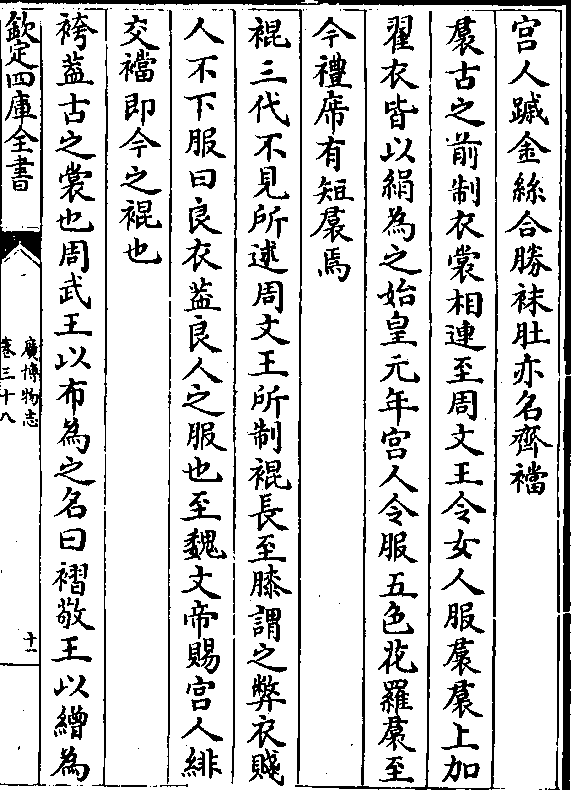 宫人蹙金絲合勝袜肚亦名齊襠
裠古之前制衣裳相連至周文王令女人服裠裠上加
翟衣皆以絹為之始皇元年宫人令服五色花羅裠至
今禮席有短裠焉
裩三代不見所述周文王所制裩長至膝謂之弊衣賤
人不下服曰良衣葢良人之服也至魏文帝賜宫人緋
交襠即今之裩也
袴葢古之裳也周武王以布為之名曰褶敬王以繒為
欽定四庫全書
廣博物志
卷三十八
十一